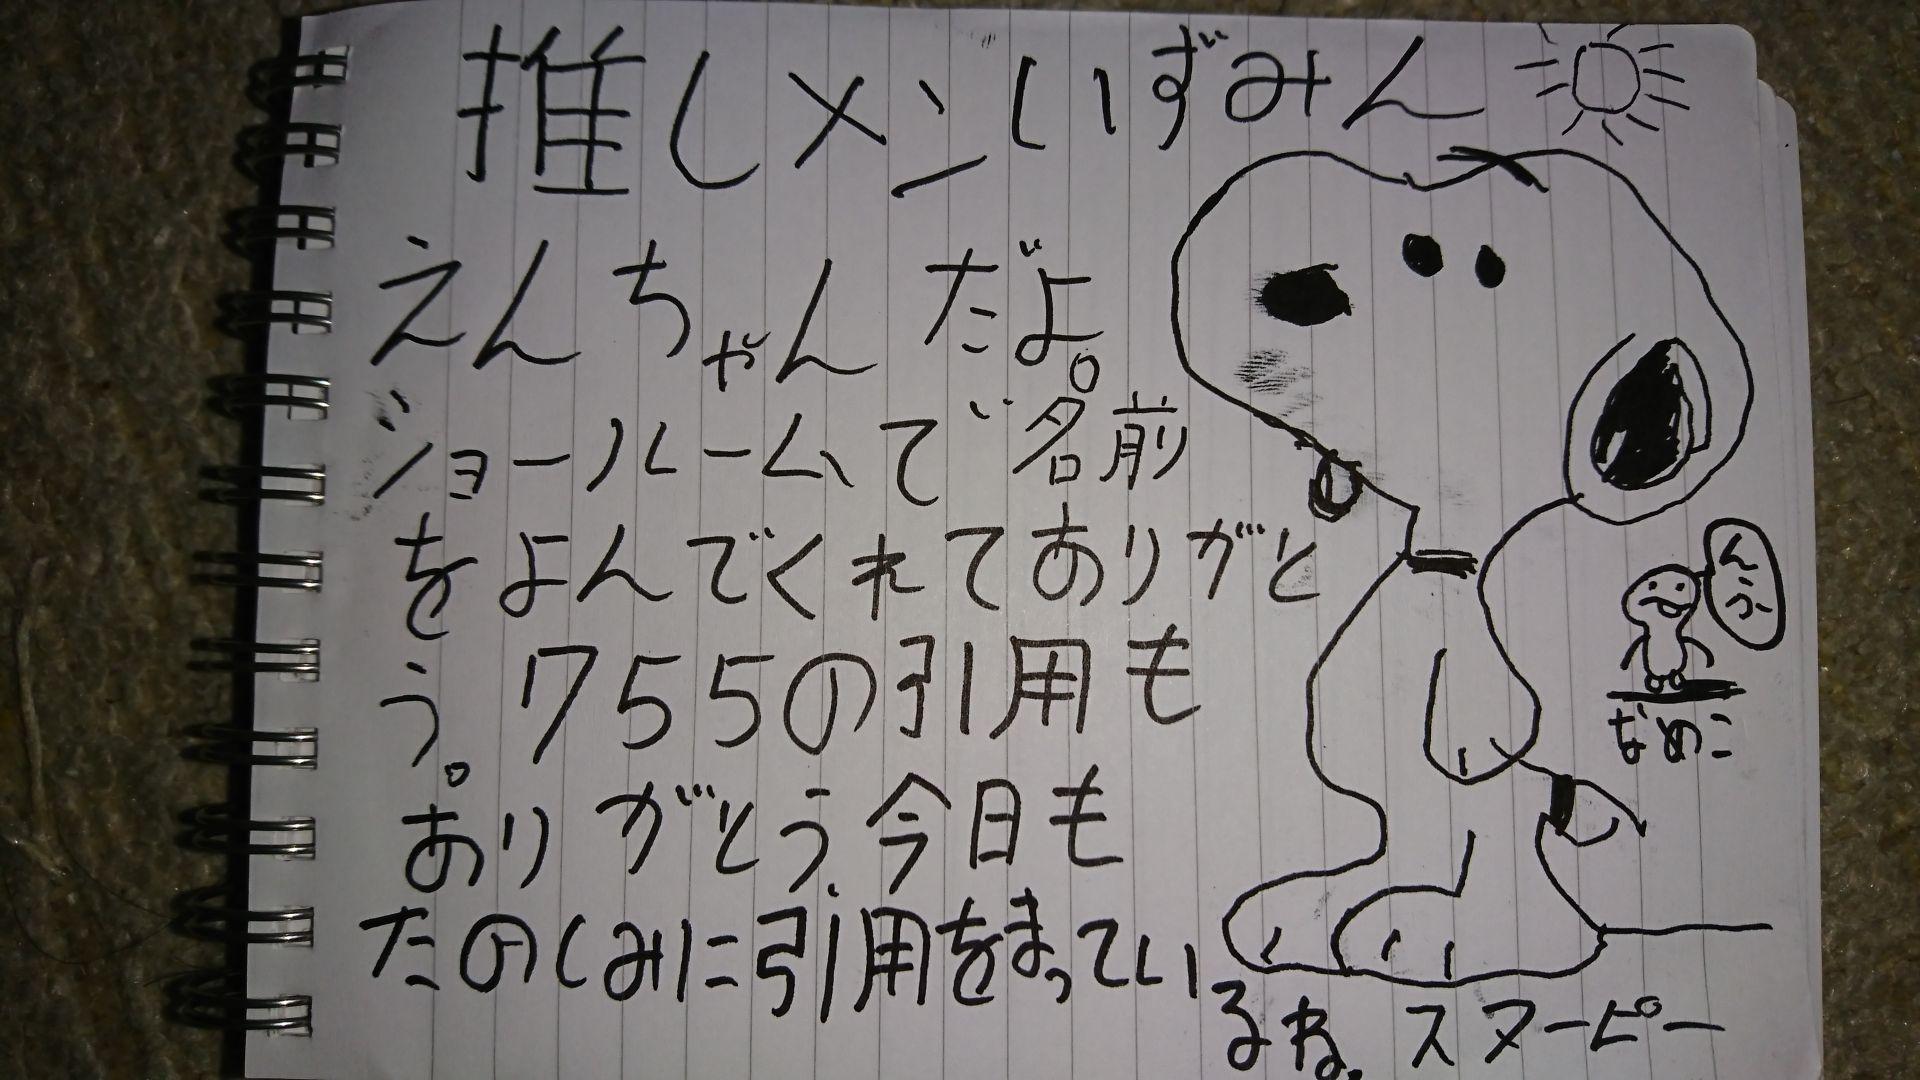 推しメンいずみん
えんちゃんだよ。
ショールームで名前
をよんでくれてありがと
う。755の引用も
ありがとう今日も
たのしみに引用をまってい
るね。スヌーピー
んふ
なめこ